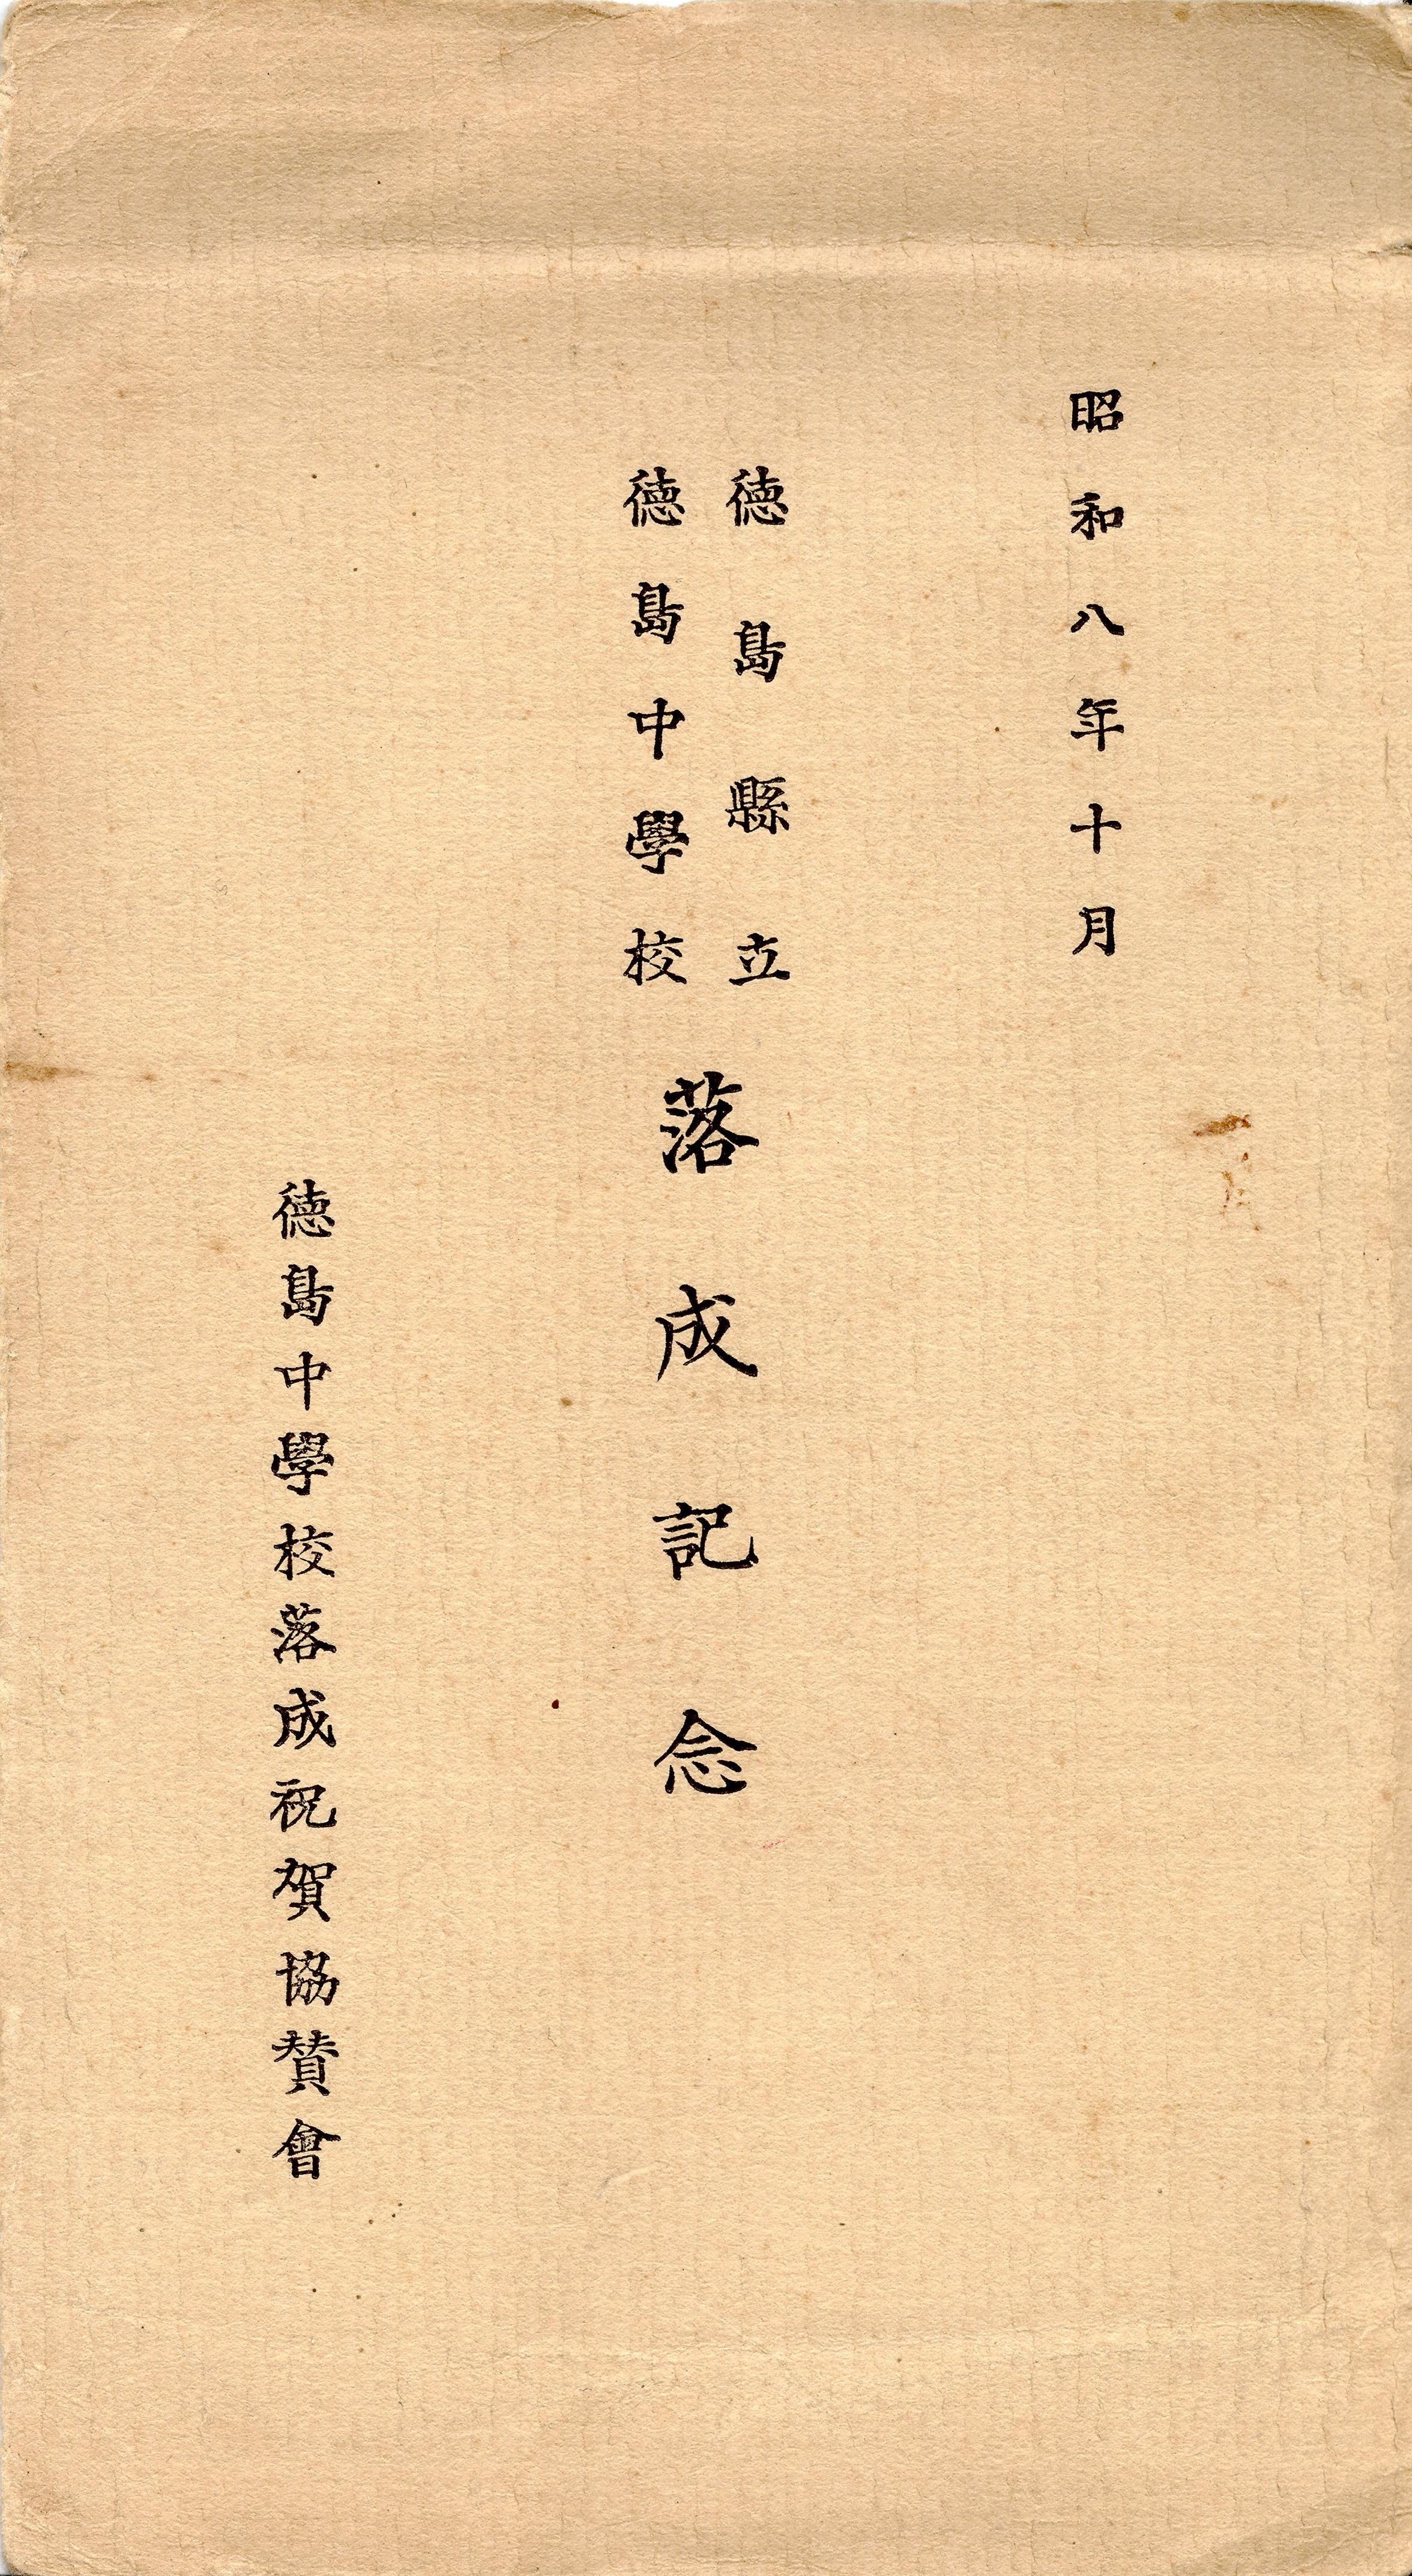 昭和八年十月
徳島縣立
徳島中學校
落成記念
徳島中學校落成祝賀協賛會